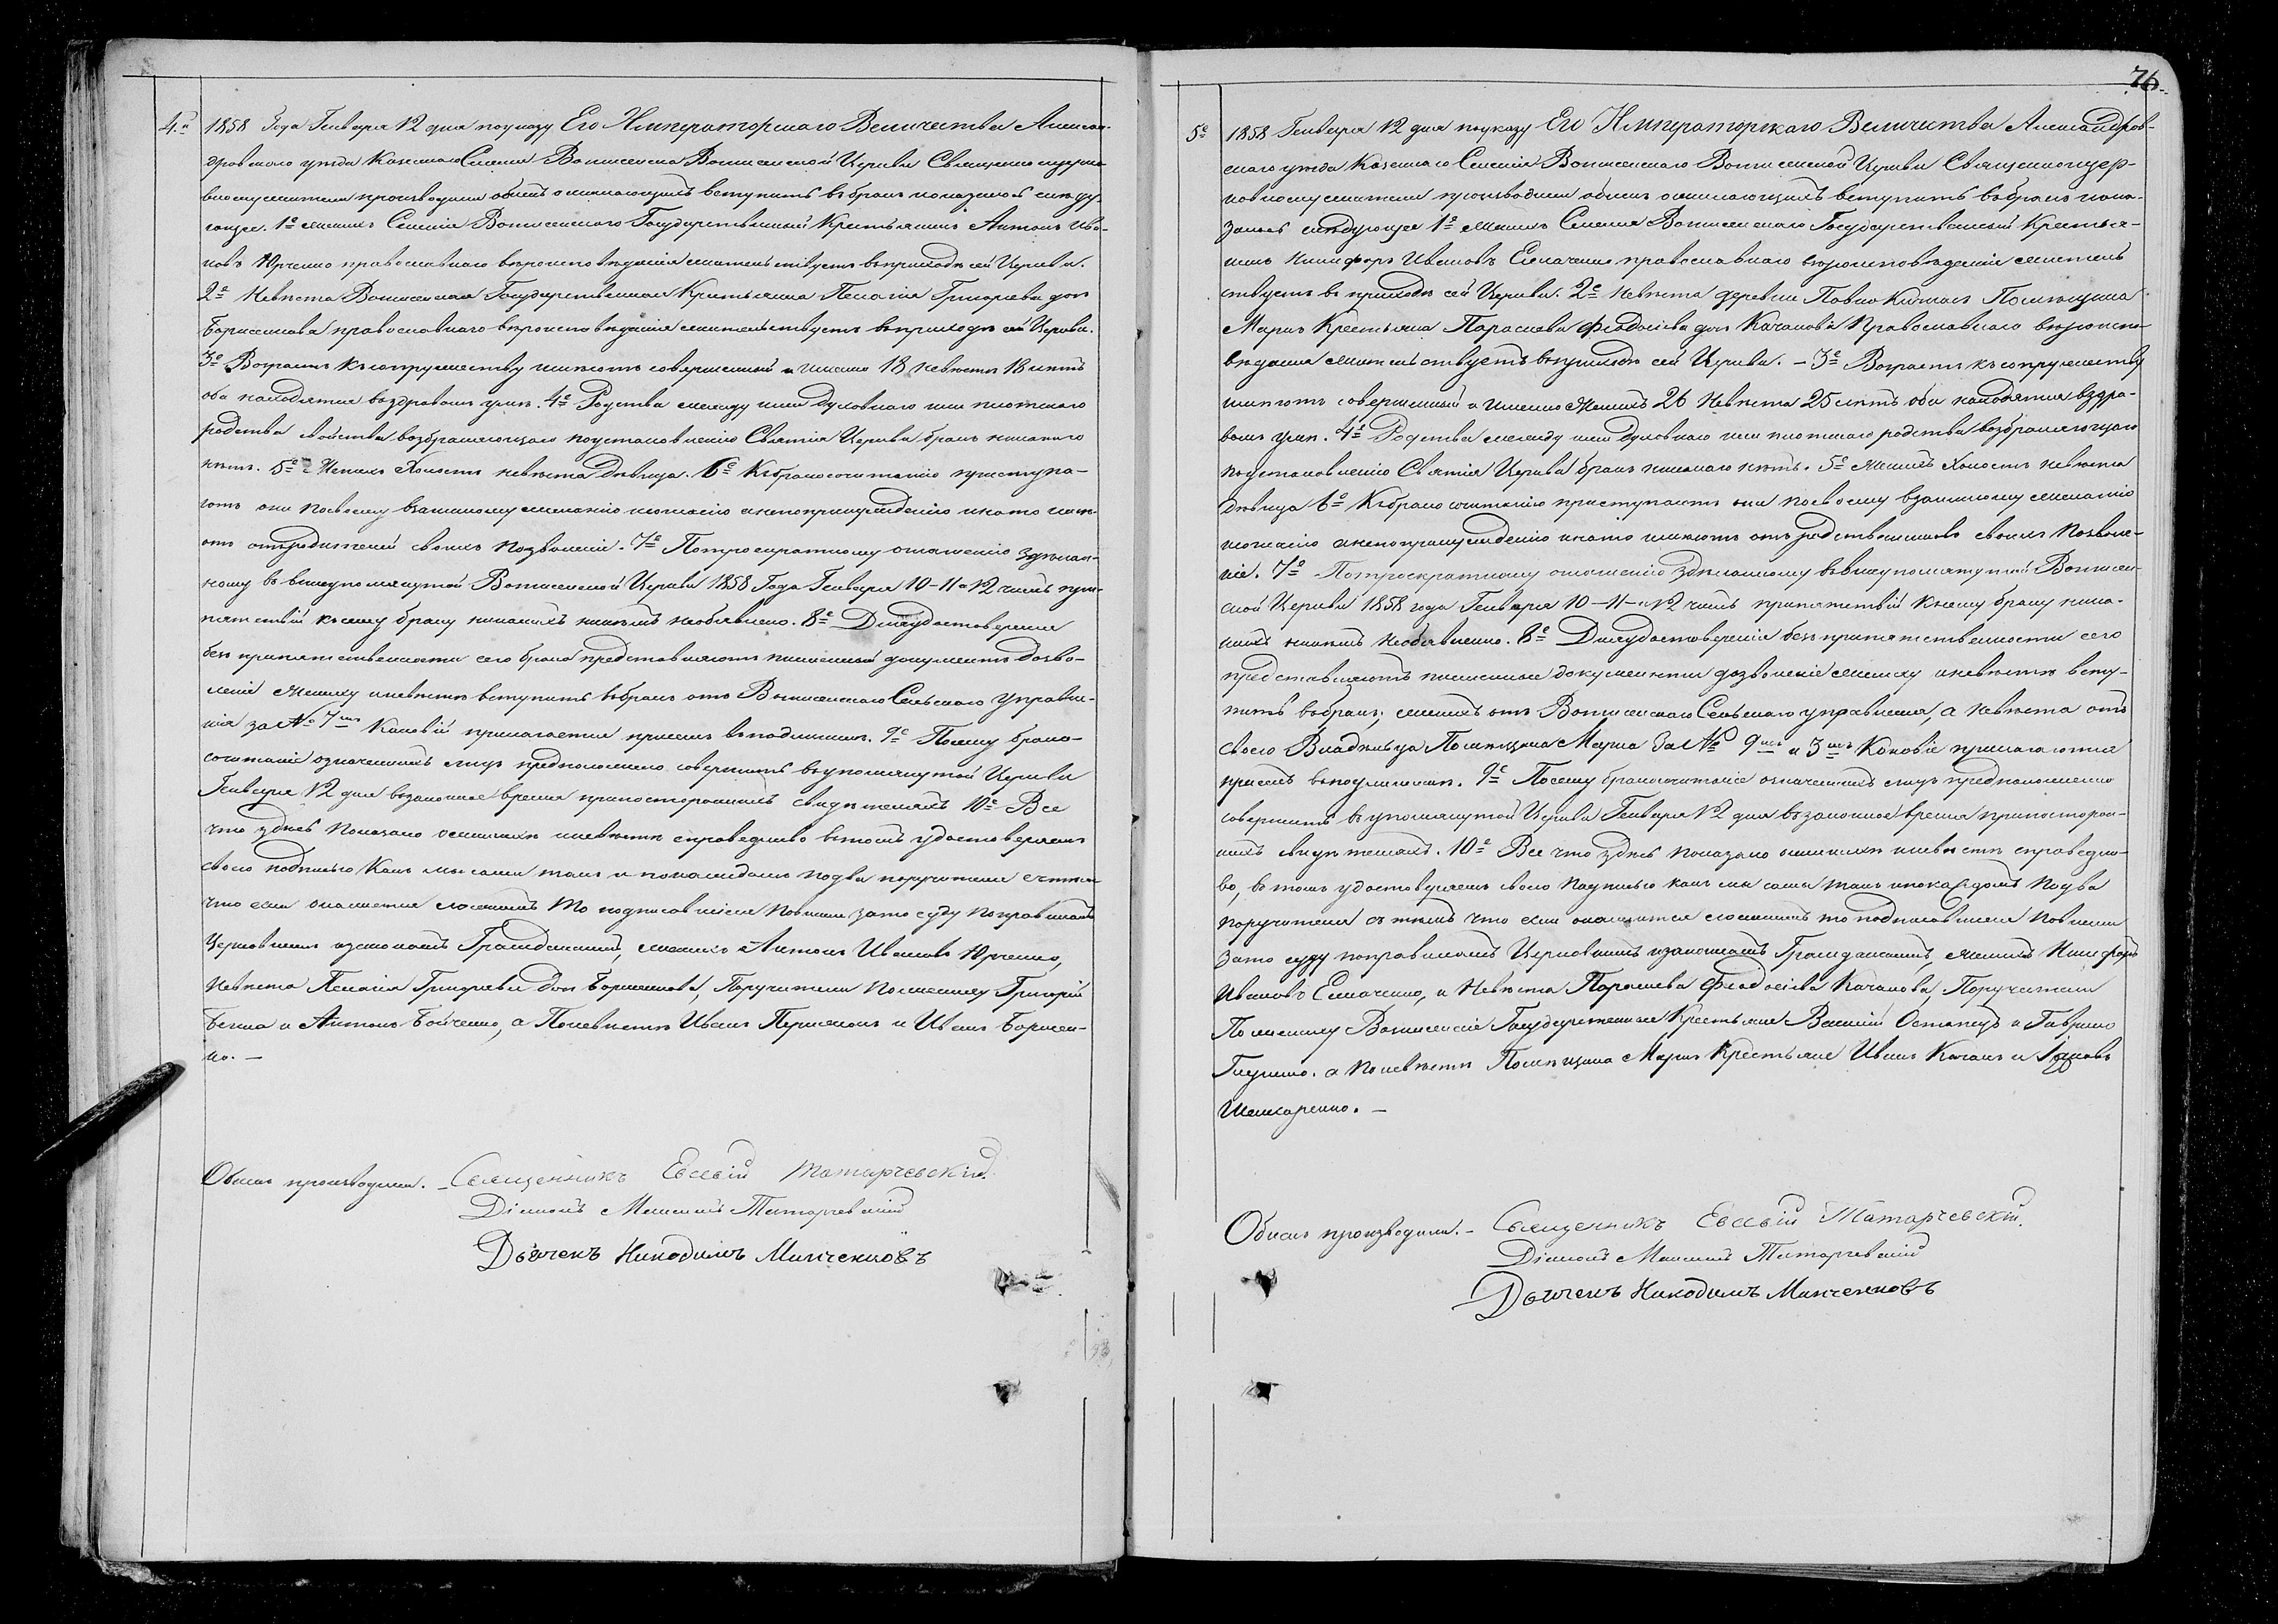 4.е
1858 Года Генваря 12 дня по указу Его Императорскаго Величества Алексан-
дровскаго уезда Казеннаго Селения Вознесенска Вознесенской Церкви Священно и церко-
вно служители производили обыскъ о желающихъ вступить въ бракъ и оказалось следу-
ющее. 1е Женихъ Селения Вознесенскаго Государственный Крестьянинъ Антонъ Ива-
новъ Юрченко православнаго вероисповедания жительствуетъ въ приходе сей Церкви.
2е Невеста Вознесенская Государственная Крестьянка Пелагия Григорьева доч
Борисенкова православнаго вероисповедания жительствуетъ въ приходе сей Церкви.
3е Возрастъ къ супружеству имеютъ совершенный и именно 18 невеста 18 летъ
оба находятся въ здравомъ уме. 4е Родства между ими духовнаго или плотскаго
родства свойства возбраняющаго по установлению Святыя Церкви бракъ никакого
нетъ. 5е Женихъ Холостъ невеста Девица. 6е Къ бракосочетанию приступа-
ютъ они по своему взаимному желанию и согласию а не по принуждению и на то име-
ютъ отъ родителей своихъ позволение. 7е По троекратному оглашению зделан-
ному въ вышеупомянутой Вознесенской Церкви 1858 Года Генваря 10-11 и 12 числъ пре-
пятствий къ сему браку никакихъ никемъ не объявлено. 8е Для удостоверения
безпрепятственности сего брака представляютъ письменный документъ дозво-
ление жениху и невесте вступить въ бракъ отъ Вознесенскаго Сельскаго Управле-
ния за № 7мъ Каковый прилагается при семъ въ подлиннике. 9е По сему брако-
сочетание означенныхъ лицъ предположено совершить въ упомянутой Церкви
Генваря 12 дня въ законное время при постороннихъ свидетеляхъ 10е Все
что здесь показано о женихе и невесте справедливо въ томъ удостоверяемъ
своею подписью Какъ мы сами такъ и по каждомъ по два поручителя с темъ
что если окажется ложнымъ то подписавшиеся повинны за то суду по правиламъ
Церковнымъ и законамъ Гражданскимъ, женихъ Антонъ Ивановъ Юрченко,
Невеста Пелагия Григорьева доч Борисенкова, Поручители По жениху Григорий
и Антонъ Бойченко, а По невесте Иванъ и Иванъ Борисен-
ко. —
Обыскъ производили. Священникъ Евсевій Татарчевскій.
Діаконъ Татарчевскій
Дьячекъ Никодимъ Минченковъ
76.
5е
1858 Генваря 12 дня по указу Его Императорскаго Величества Александров-
скаго уезда Казеннаго Селения Вознесенскаго Вознесенской Церкви Священно и цер-
ковно служители производили обыскъ о желающихъ вступить въ бракъ и ока-
залось следующее 1е Женихъ Селения Вознесенскаго Государственный Крестья-
нинъ Никифоръ Ивановъ православнаго вероисповедания житель-
ствуетъ въ приходе сей Церкви. 2е Невеста деревни Помещика
Марка Крестьянка Параскева Феодосіева доч Качанова Православнаго вероиспо-
ведания жительствуетъ въ приходе сей Церкви. — 3е Возрастъ къ супружеству
имеютъ совершенный а именно Женихъ 26 Невеста 25 летъ оба находятся въ здра-
вомъ уме. 4е Родства между ими духовнаго или плотскаго родства возбраняющаго
по установлению Святыя Церкви бракъ никакого нетъ. 5е Женихъ Холостъ невеста
Девица 6е Къ бракосочетанию приступаютъ они по своему взаимному желанию
и согласию а не по принуждению и на то имеютъ отъ родственниковъ своихъ позволе-
ние. 7е По троекратному оглашению зделанному въ вышеупомянутой Вознесен-
ской Церкви 1858 года Генваря 10-11- и 12 числъ препятствий къ сему браку ника-
кихъ никемъ не объявлено. 8е Для удостоверения безпрепятственности сего
представляютъ письменные документы дозволение жениху и невесте всту-
пить въ бракъ, женихъ отъ Вознесенскаго Сельскаго управления, а невеста отъ
своего Владельца Помещика Марка За № 9мъ и 3мъ Каковые прилагаются
при семъ въ подлиннике. 9е По сему бракосочетание означенныхъ лицъ предположено
совершить въ упомянутой Церкви Генваря 12 дня въ законное время при посторон-
нихъ свидетеляхъ. 10е Все что здесь показано о женихе и невесте справедли-
во, въ томъ удостоверяемъ своею подписью какъ мы сами такъ и по каждомъ по два
поручителя съ темъ что если окажется ложнымъ то подписавшиеся повинны
за то суду по правиламъ Церковнымъ и законамъ Гражданскимъ, Женихъ Никифоръ
Ивановъ и Невеста Параскева Феодосіева Качанова, Поручители
По жениху Вознесенские Государственные Крестьяне Василий Остапецъ и Гаврило
а По невесте Помещика Марка Крестьяне Иванъ Качанъ и Яковъ
Обыскъ производили. — Священникъ Евсевій Татарчевскій.
Діаконъ Татарчевскій
Дьячекъ Никодимъ Минченковъ